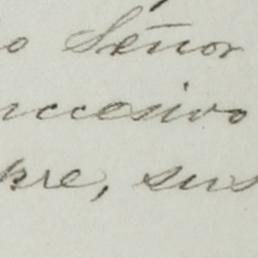 o Señor
uccesivo
pre, sus